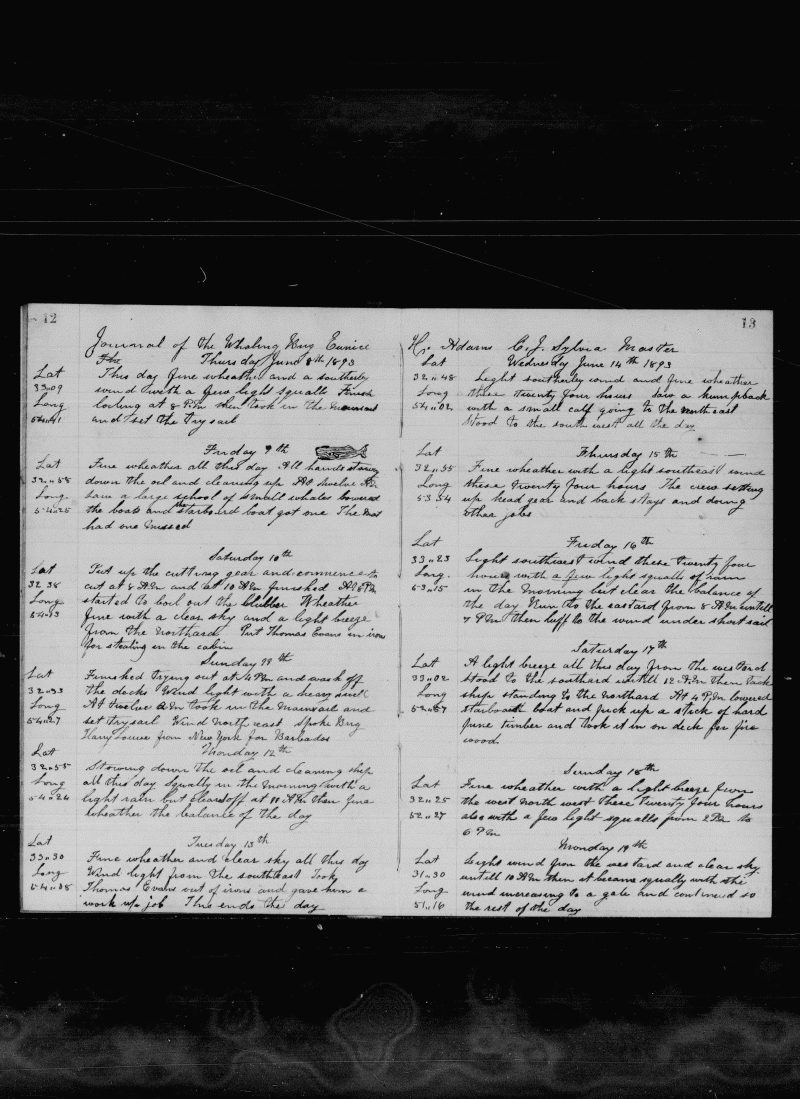 12
Journal of the Whaling Brig Eunice
Thursday June 8th 1893
Lat This day fine wheather and a southerly
33"09 wind with a few light squalls Finish
Long looking at 8 P.M. then took in the mainsail
54"41 and set the trysail
Friday 9th
Lat Fine wheather all this day All hands stowing
32"58 down the oil and cleaning up At twelve AM
Long saw a large school of small whales lowered
54"25 the boats and the starboard boat got one The
had one missed
Saturday 10th
Lat Put up the cutting gear and commence to
32 38 cut at 8 AM and at 10 AM finished At 6 PM
Long started to boil out the blubber Wheather
54"13 fine with a clear sky and a light breeze
from the northard Put Thomas Evans in irons
for stealing in the cabin
Sunday 11th
Lat Finished trying out at 4 PM and wash off
32"33 the decks Wind light with a heavy swell
Long At twelve AM took in the mainsail and
54"27 set trysail Wind north east Spoke Brig
Harry Louise from New York for Barbados
Monday 12th
Lat
32"55 Stowing down the oil and cleaning ship
Long all this day Squally in the morning with a
54"24 light rain but cleared off at 11 AM then fine
wheather the balance of the day
Tuesday 13th
Lat
33"30 Fine wheather and clear sky all this day
Long Wind light from the southeast Took
54"35 Thomas Evans out of irons and gave him a
work up job This ends the day
13
H. Adams C. J. Sylvia Master
Lat Wednesday June 14th 1893
32"48 Light southerley wind and fine wheather
Long these twenty four hours Saw a humpback
54"02 with a small calf going to the north east
Stood to the south west all the day
Lat Thursday 15th
32"35 Fine wheather with a light southeast wind
Long these twenty four hours The crew setting
53 34 up head gear and back stays and doing
other jobs
Lat Friday 16th
33"23 Light southwest wind these twenty four
Long hours with a few light squalls of rain
53"15 in the morning but clear the balance of
the day Run to the eastard from 8 AM untill
7 PM then luff to the wind under short sail
Saturday 17th
Lat A light breeze all this day from the westard
33"02 Stood to the southard untill 12 AM then tack
Long ship standing to the northard At 4 PM lowered
52"57 starboard boat and pick up a stick of hard
pine timber and took it in on deck for fire
wood
Sunday 18th
Lat Fine wheather with a light breeze from
32"25 the west north west these twenty four hours
52"27 also with a few light squalls from 2 PM to
6 PM
Monday 19th
Lat Light wind from the westard and clear sky
31"30 untill 10 AM then it became squally with the
Long wind increasing to a gale and continued so
51"16 the rest of the day